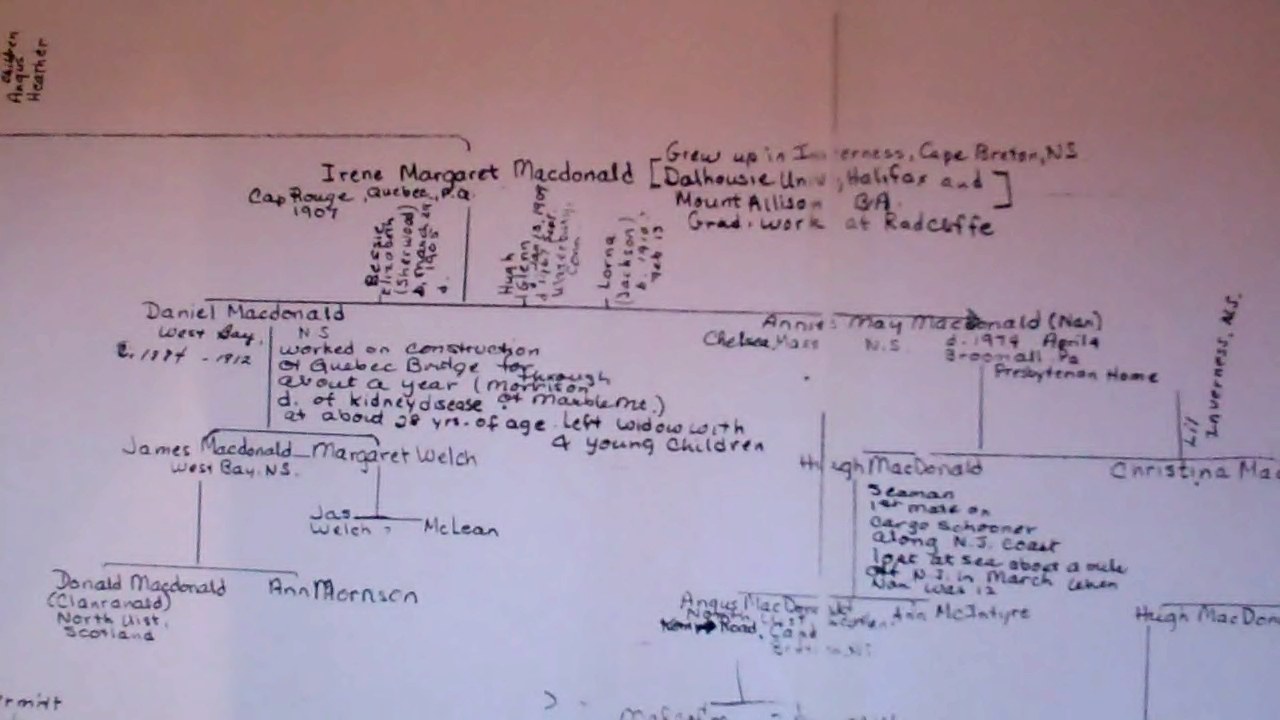 children
Angus
Heather
Irene Margaret Macdonald
Cap Rouge, Quebec, P.Q.
1907
[Grew up in Inverness, Cape Breton, NS
Dalhousie Univ, Halifax and]
Mount Allison BA.
Grad. work at Radcliffe
Bessie
Elizabeth
(Sherwood)
b. March
1905
d.
Hugh
Glenn
1909
Waterbury,
Conn.
Lorna
(Jackson)
b. 1910,
Feb 13
Daniel Macdonald
West Bay, N S
c. 1884 - 1912
worked on construction
of Quebec Bridge for
through
about a year (Morrison
d. of kidney disease of Marble Mt.)
at about 28 yrs. of age. Left widow with
4 young children
Annie May Macdonald (Nan)
Chelsea, Mass N.S. d. 1974 April 4
Broomall, Pa
Presbyterian Home
James Macdonald - Margaret Welch
West Bay, N.S.
Jas McLean
Welch ?
Donald Macdonald Ann Morrison
(Clanranald)
North Uist,
Scotland
Hugh MacDonald
Seaman
1st mate on
cargo schooner
along N.J. coast
lost at sea about a mile
off N.J. in March when
Nan was 12
Lil
Inverness, N.S.
Christina Mac
Angus MacDon Ann McIntyre
North Uist,
Road, Cape
Breton, NS
Hugh MacDon